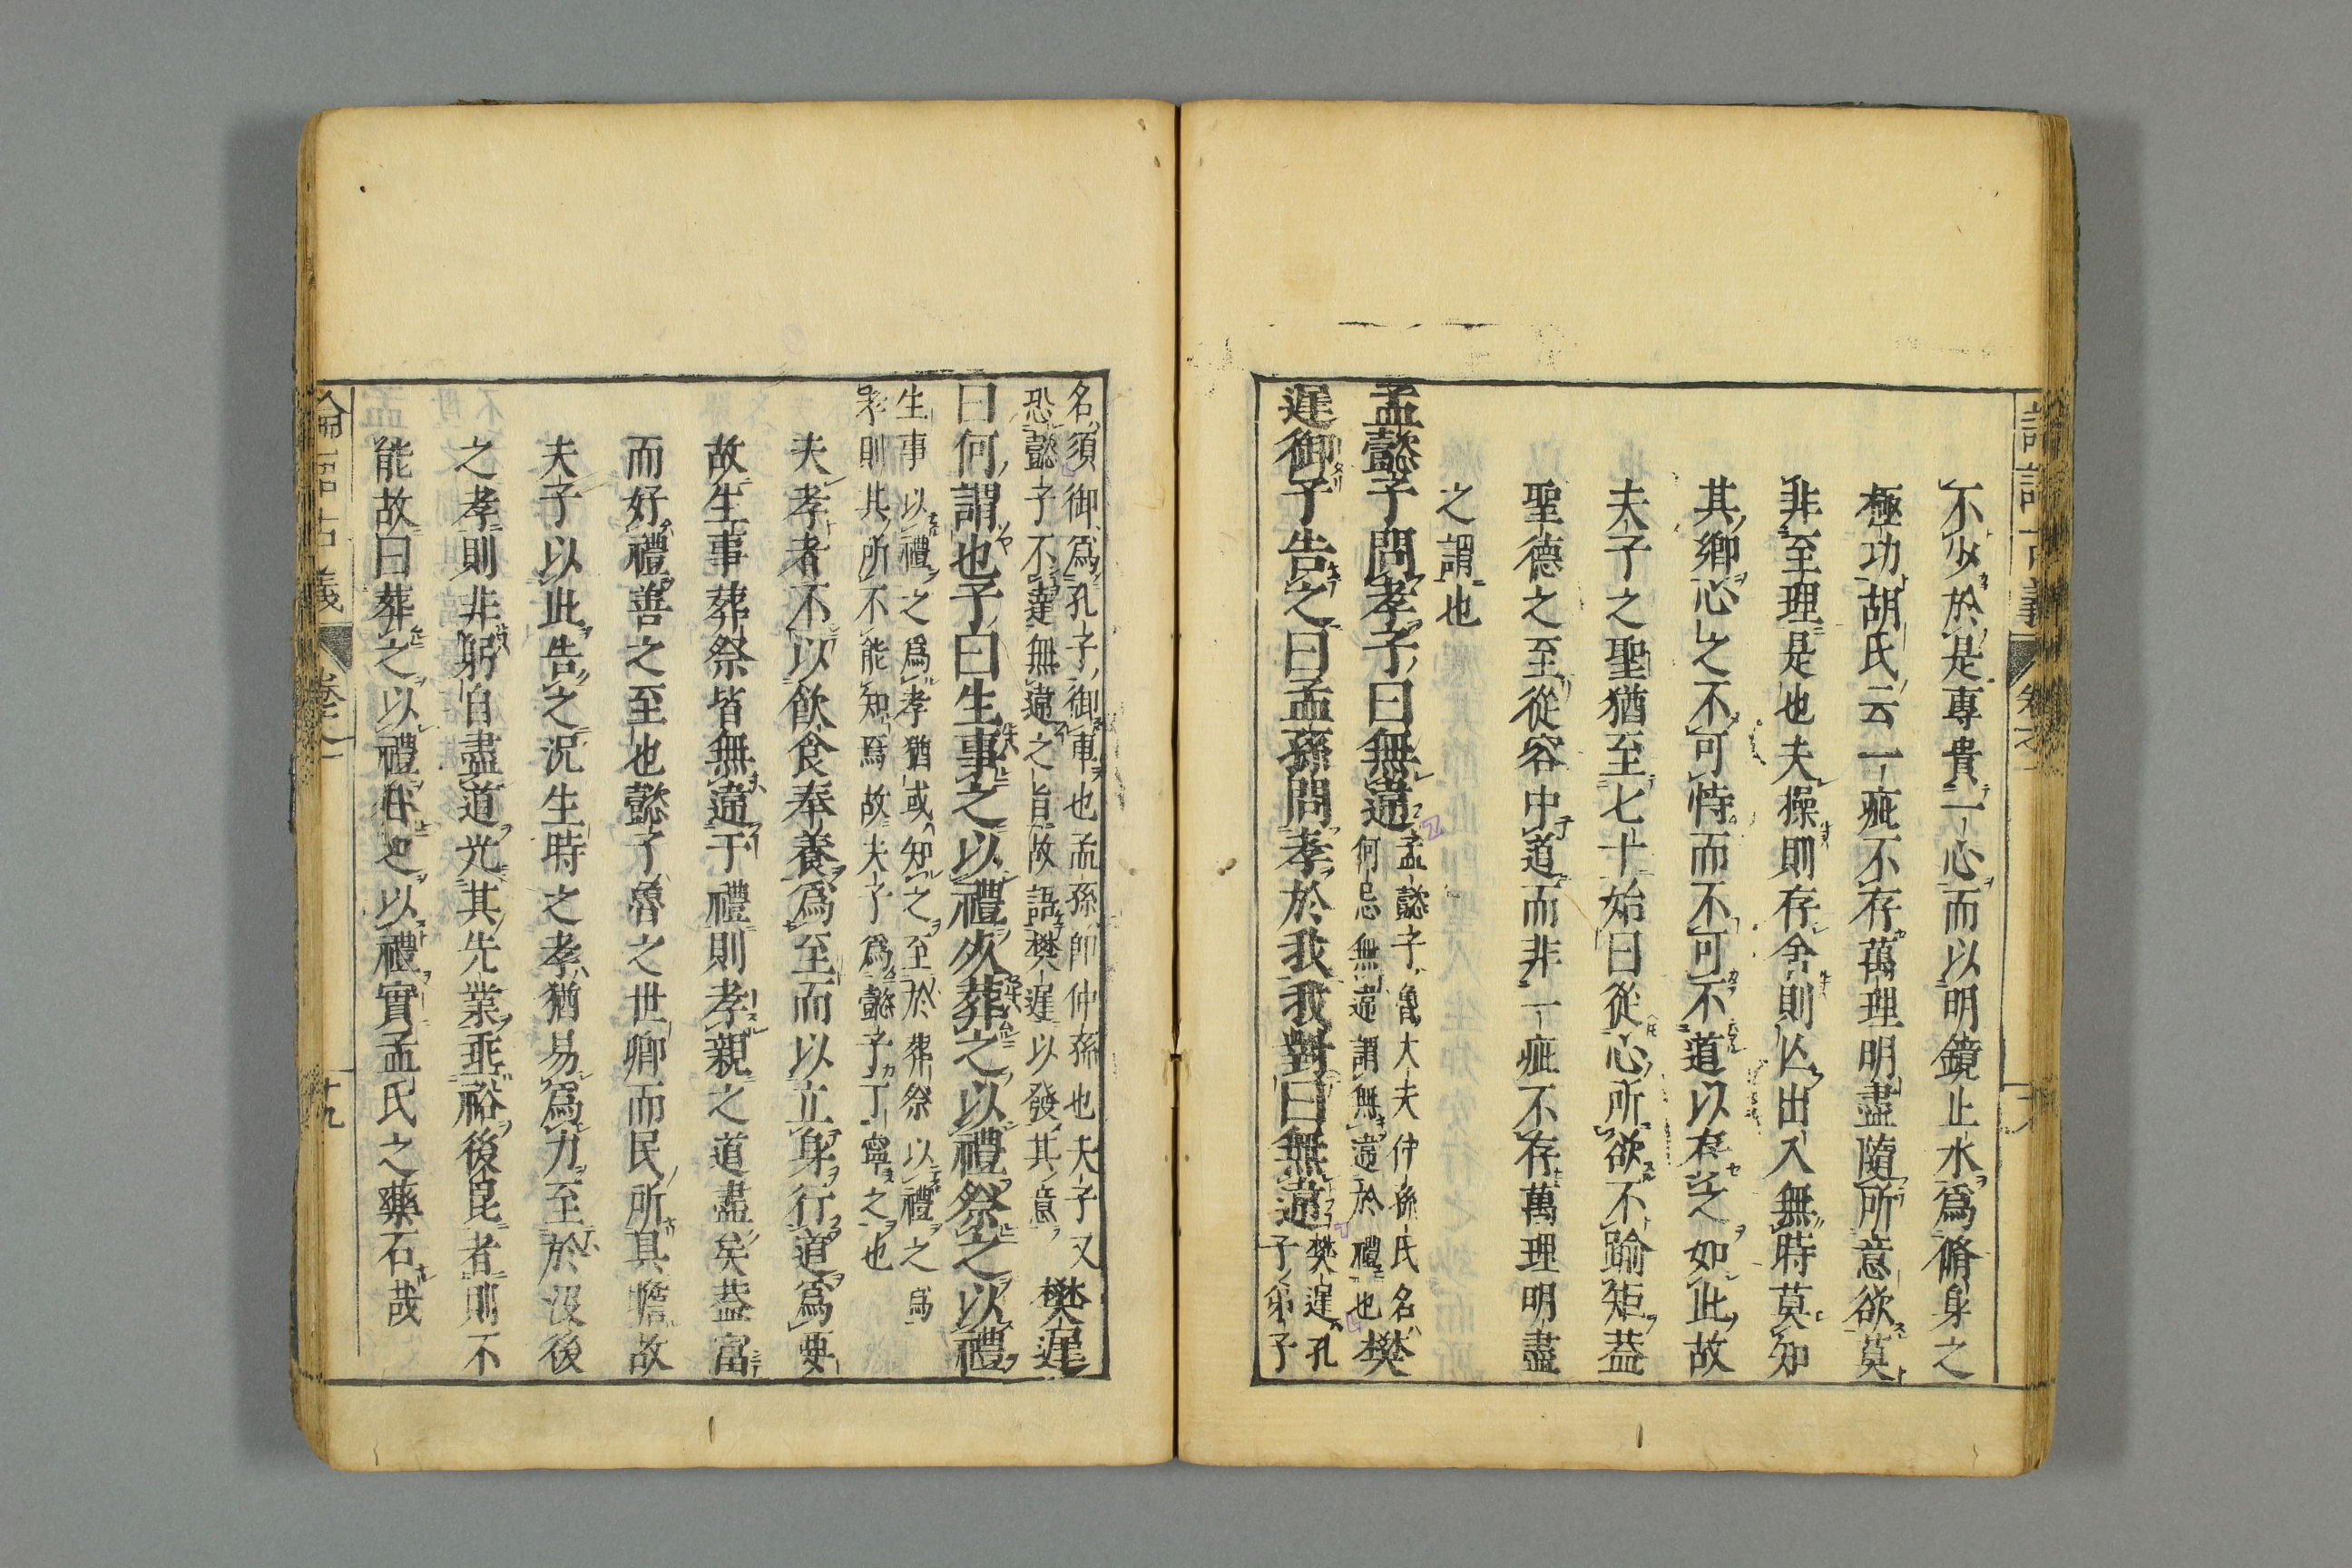 不少於是專貴一心而以明鏡止水爲脩身之
極功胡氏云一疵不存萬理明盡隨所意欲莫
非至理是也夫操則存舍則亾出入無時莫知
其鄉心之不可恃而不可不道以存之如此故
夫子之聖猶至七十始曰從心所欲不踰矩蓋
聖德之至從容中道而非一疵不存萬理明盡
之謂也
孟懿子問孝子曰無違
孟懿子魯大夫仲孫氏名
何忌無違謂無違於禮也
樊
遲御子告之曰孟孫問孝於我我對曰無違
樊遲孔
子弟子
名須御爲孔子御車也孟孫卽仲孫也夫子又
恐懿子不達無違之旨故語樊遲以發其意
樊遲
曰何謂也子曰生事之以禮死葬之以禮祭之以禮
生事以禮之爲孝猶或知之至於葬祭以禮之爲
孝則其所不能知焉故夫子爲懿子丁寧之也
夫孝者不以飮食奉養爲至而以立身行道爲要
故生事葬祭皆無違于禮則孝親之道盡矣蓋富
而好禮善之至也懿子魯之世卿而民所具瞻故
夫子以此告之況生時之孝猶易爲力至於沒後
之孝則非躬自盡道光其先業垂裕後昆者則不
能故曰葬之以禮祭之以禮實孟氏之藥石哉
論語古義
卷之一
十九